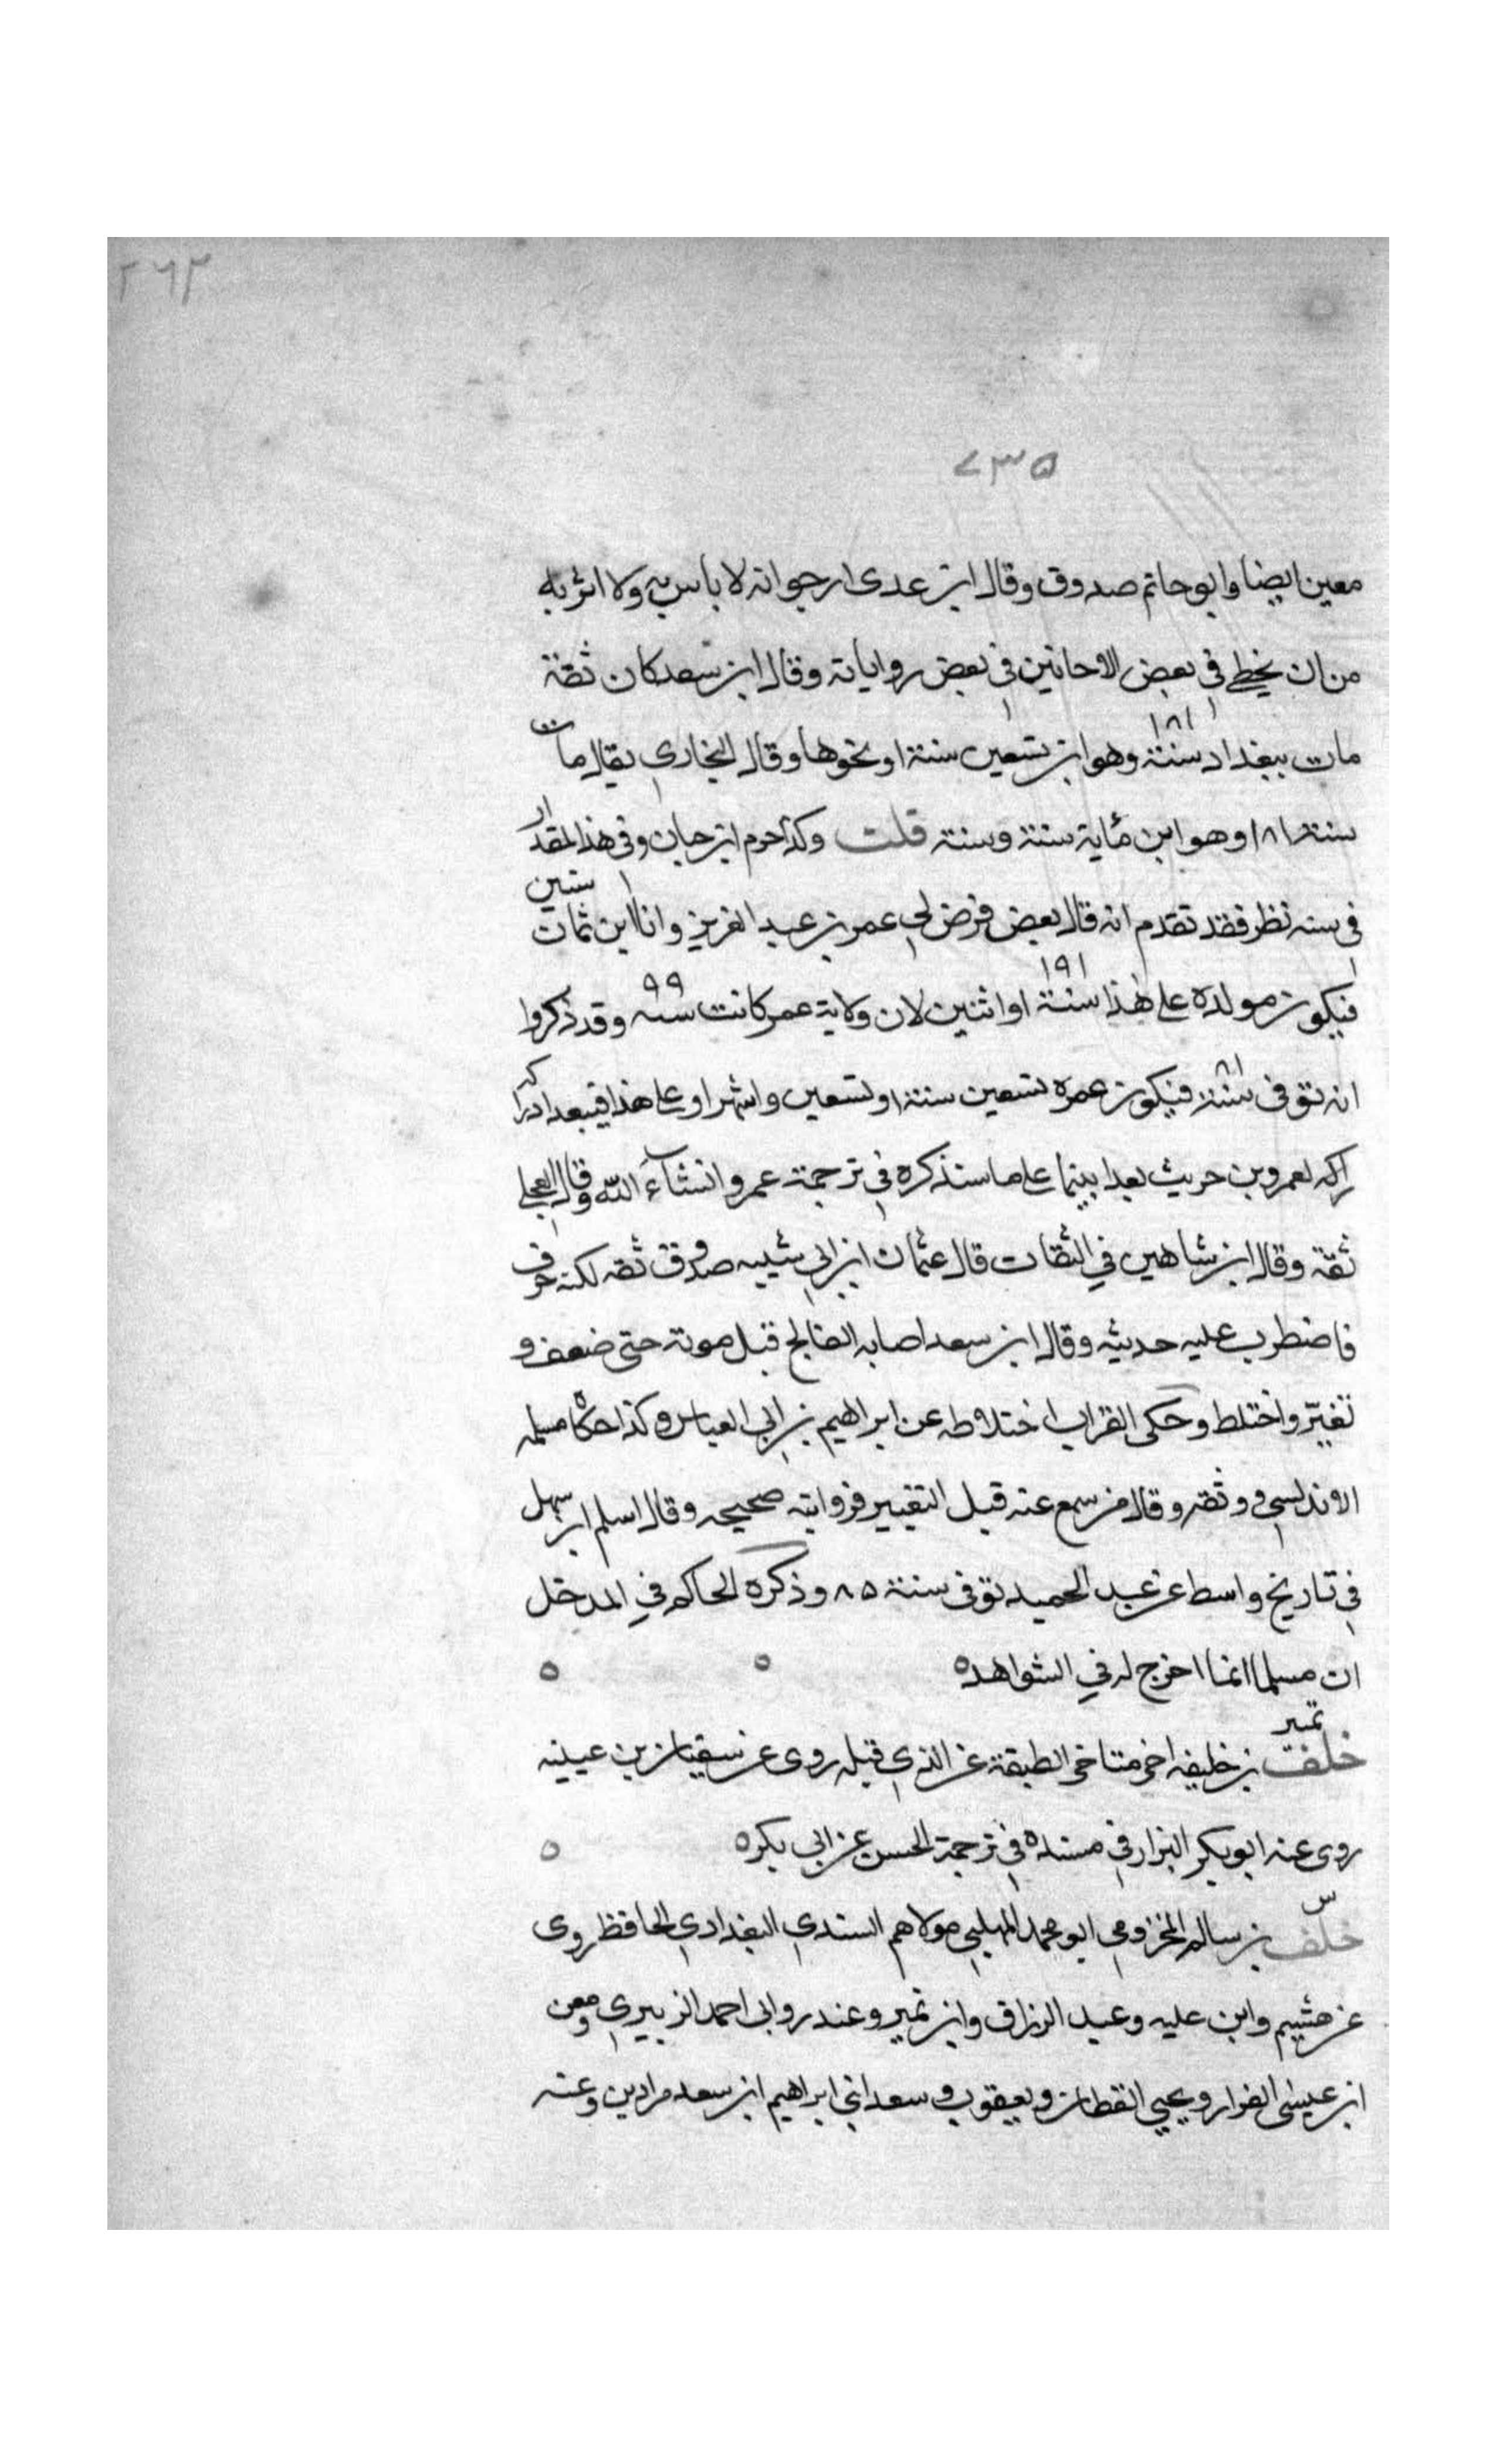 ٢٦٣
٧٣٥
معين ايضا وابو حاتم صدوق وقال ابن عدى ارجو انه لا باس به ولا ابرئه
من ان يخطى في بعض الاحانين في بعض رواياته وقال ابن سعد كان ثقة
مات ببغداد سنة ١٨١ وهو ابن تسعين سنة او نحوها وقال البخاري يقال مات
سنة ١٨١ وهو ابن مأية سنة وسنة قلت وكذا جزم ابن حبان وفى هذا المقدار
في سنه نظر فقد تقدم انه قال بعض فرض لي عمر بن عبد العزيز وانا ابن ثمان سنين
فيكون مولده على هذا سنة ٩١ او اثنين لان ولاية عمر كانت سنه ٩٩ وقد ذكروا
انه توفى سنة ٨١ فيكون عمره تسعين سنة او تسعين واشهرا وعلى هذا فيبعد ادراكه
راكه لعمرو بن حريث بعدا بينا على ما سنذكره في ترجمة عمرو انشآء الله وقال العجلى
ثقة وقال ابن شاهين في الثقات قال عثمان ابن ابي شيبه صدوق ثقه لكنه خرف
فاضطرب عليه حديثه وقال ابن سعد اصابه الفالج قبل موته حتى ضعف و
تغيّر واختلط وحكى القراب اختلاطه عن ابراهيم بن ابي العباس وكذا حكاه مسلمه
الاندلسي ووثقه وقال من سمع عنه قبل التغيير فروايته صحيحه وقال اسلم ابن سهل
في تاريخ واسط عن عبد الحميد توفى سنة ٨٥ وذكره الحاكم في المدخل
ان مسلما انما اخرج له في الشواهد ٥ ٥ ٥
تمييز
خلف بن خليفه اخر متاخر الطبقة عن الذي قبله روى عن سفيان بن عيينه
روى عنه ابو بكر البزار في مسنده في ترجمة الحسن عن ابي بكره ٥
س
خلف بن سالم المخزومي ابو محمد المهلبي مولاهم السندي البغدادي الحافظ روى
عن هشيم وابن عليه وعبد الرزاق وابن نمير وغندر وابى احمد الزبيري ومعن
ابن عيسى القزاز ويحيى القطان ويعقوب وسعد ابني ابراهيم ابن سعد مرادين وعنه